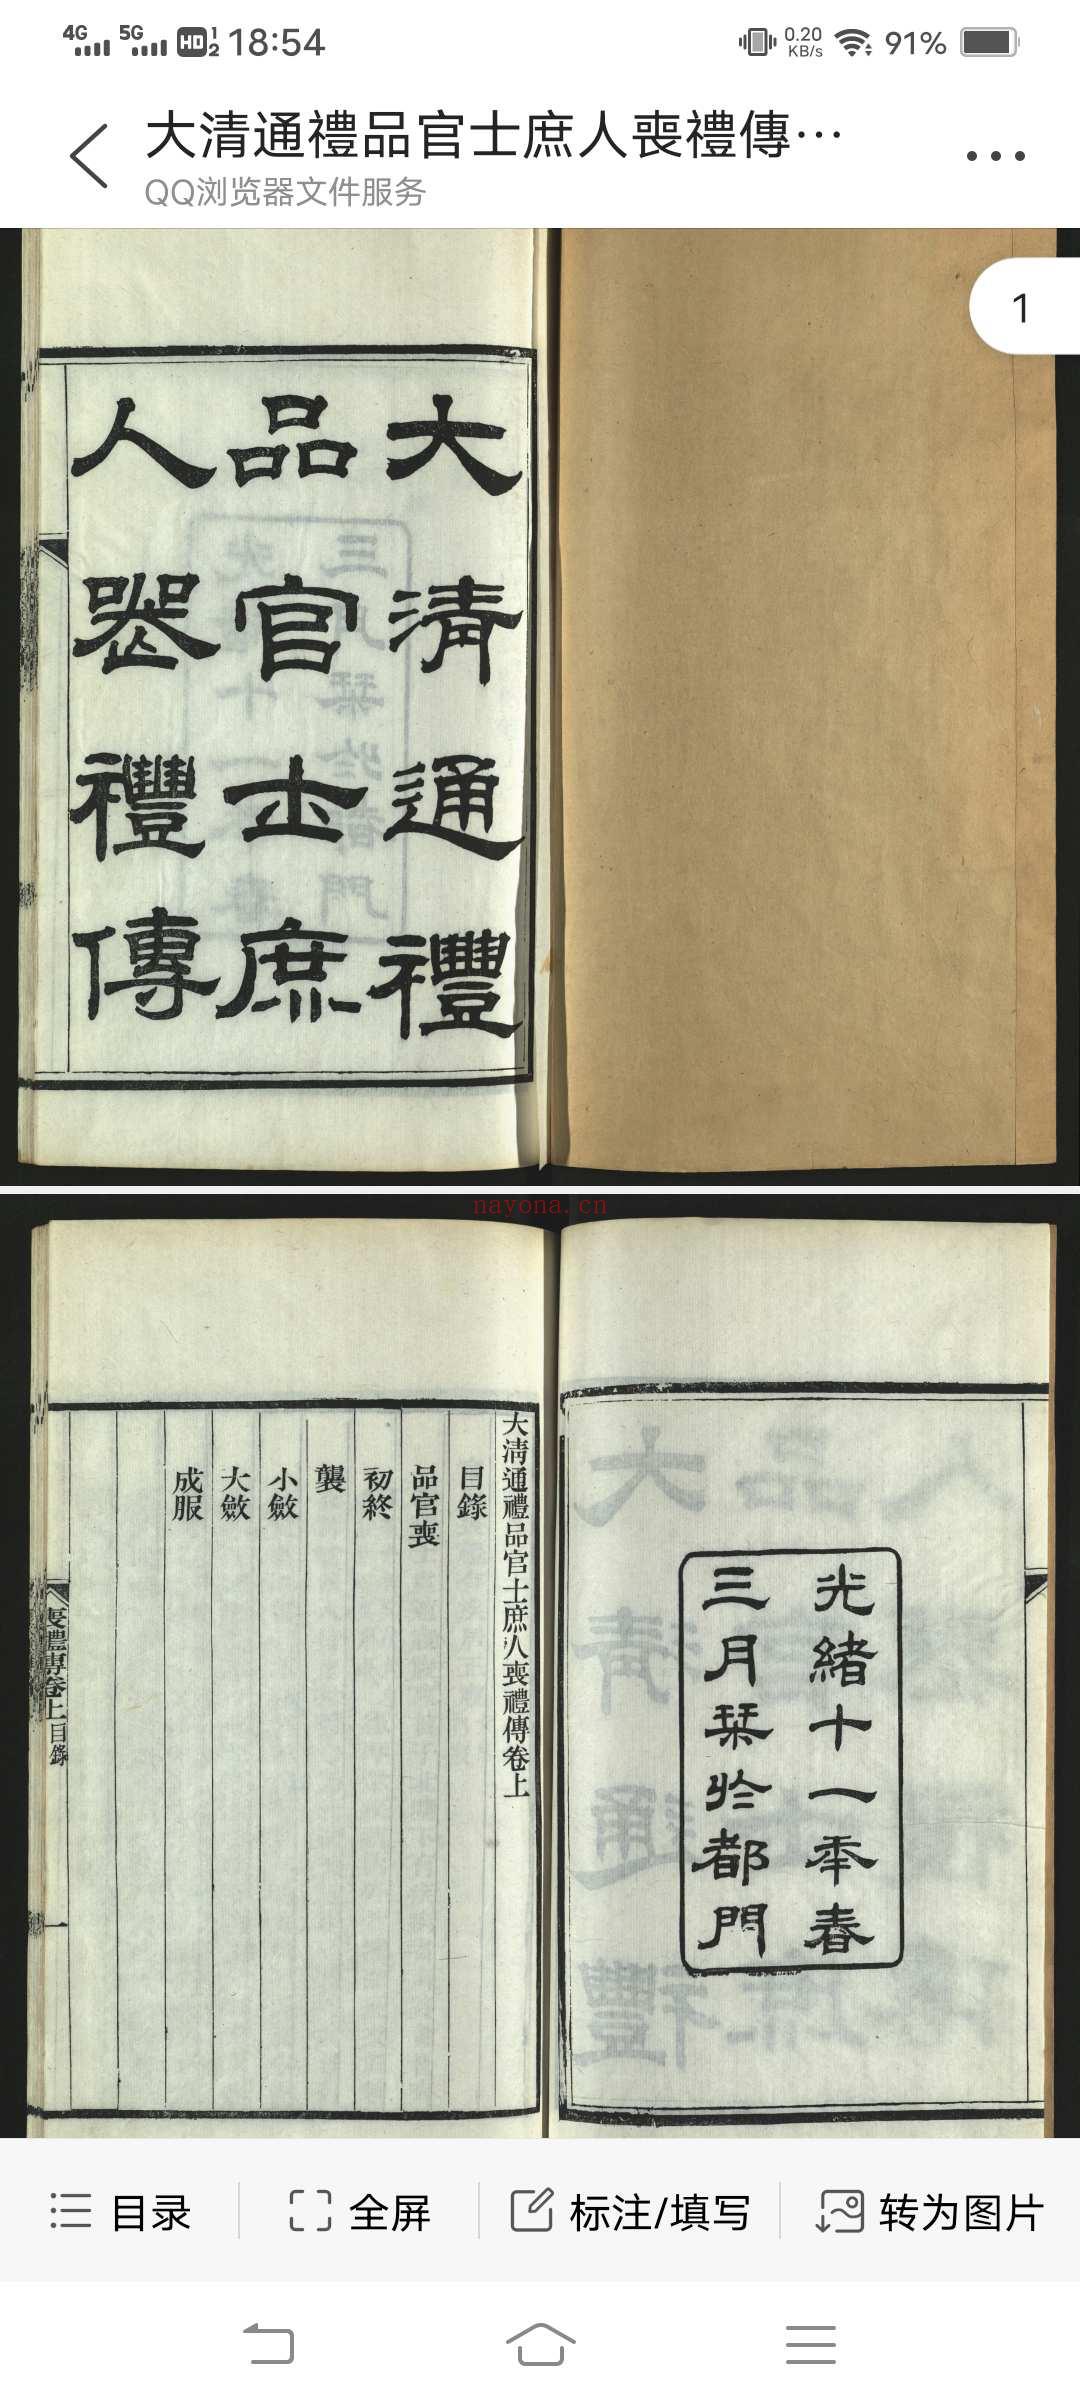 4G 5G HD 1 2 18:54 0.20 KB/s 91%
大清通禮品官士庶人喪禮傳…
QQ浏览器文件服务
1
大清通禮
品官士庶
人喪禮傳
nayona.cn
光緒十一年春
三月栞於都門
大清通禮品官士庶人喪禮傳卷上
目錄
品官喪
初終
襲
小斂
大斂
成服
喪禮傳卷上目錄
一
目录
全屏
标注/填写
转为图片